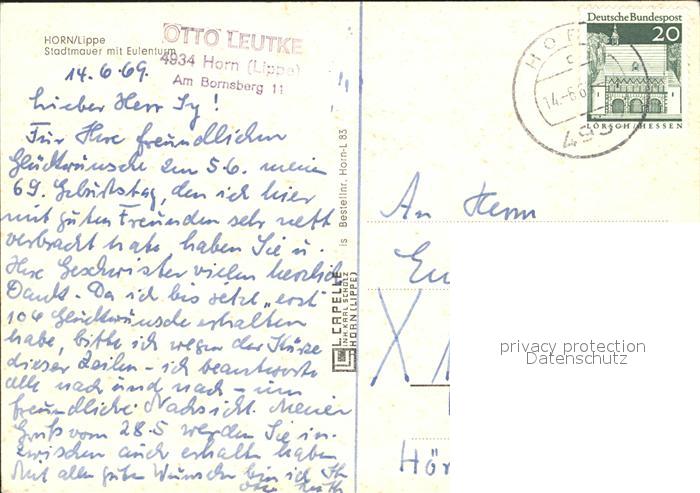 HORN/Lippe
Stadtmauer mit Eulenturm
OTTO LEUTKE
4934 Horn (Lippe)
Am Bornsberg 11
14.6.69.
Lieber Herr Ty!
Für Ihre freundlichen
Glückwünsche zum 5.6. meinem
69. Geburtstag, den ich hier
mit guten Freunden sehr nett
verbracht habe haben Sie u.
Ihre Geschwister vielen herzlich
Dank. Da ich bis jetzt „erst"
104 Glückwünsche erhalten
habe, bitte ich wegen der Kürze
dieser Zeilen - ich beantworte
alle nach und nach - um
freundliche Nachsicht. Meinen
Gruß vom 28.5 werden Sie in-
zwischen auch erhalten haben
Mit allen guten Wünschen bin ich Ihr
Otto
is Bestellnr. Horn-L 83
L. CAPELLE
INH. KARL SCHOLZ
HORN (LIPPE)
Deutsche Bundespost
20
LORSCH/HESSEN
HO
14.-6.6
493
An Herrn
privacy protection
Datenschutz
Hör